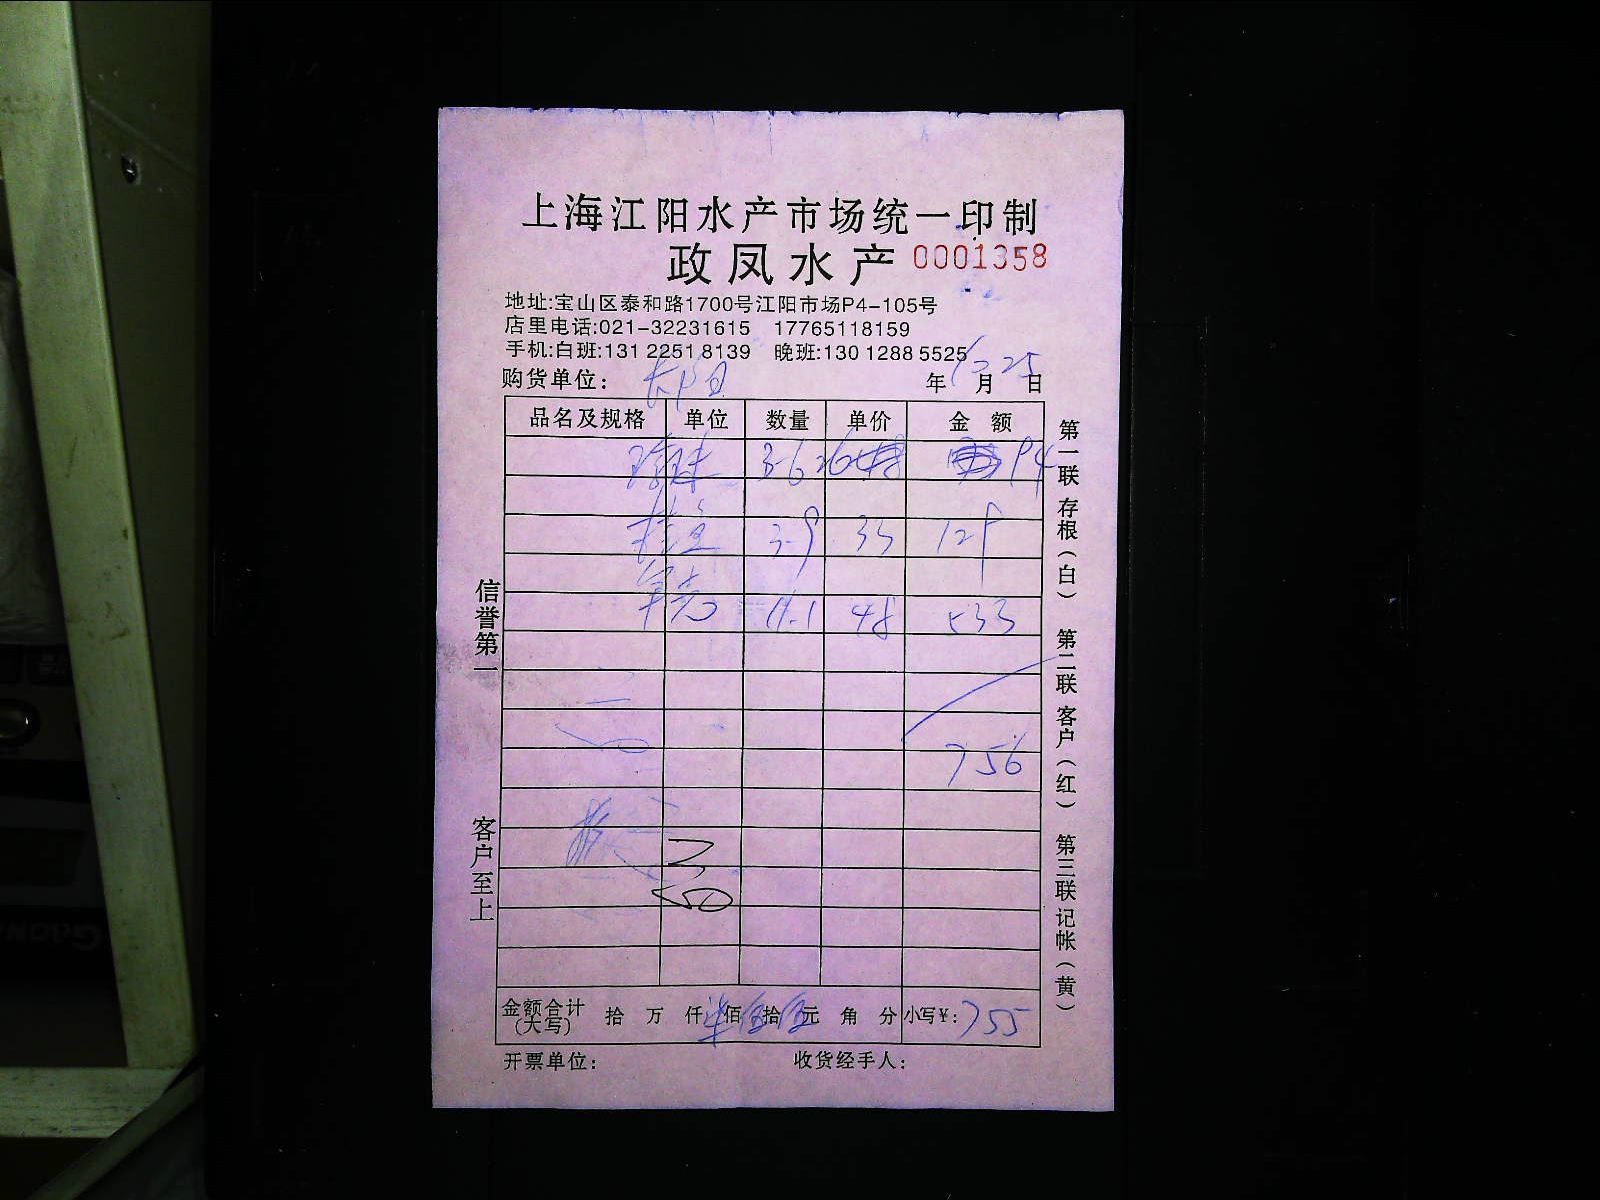 上海江阳水产市场统一印制
政凤水产 0001358
地址:宝山区泰和路1700号江阳市场P4-105号
店里电话:021-32231615 17765118159
手机:白班:131 2251 8139 晚班:130 1288 5525
购货单位: 年 月 25 日
品名及规格 单位 数量 单价 金额
3.6 26 94
3.9 33 129
11.1 48 533
756
金额合计(大写) 拾 万 仟 佰 伍 拾 伍 元 角 分 小写¥: 755
开票单位: 收货经手人:
信誉第一
客户至上
第一联 存根(白) 第二联 客户(红) 第三联 记帐(黄)